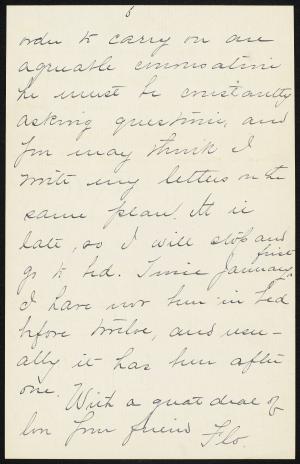 6
order to carry on an
agreeable conversation
he must be constantly
asking questions, and
you may think I
write my letters on the
same plan. It is
late, so I will stop and
go to bed. Since January first
I have not been in bed
before twelve, and usu-
ally it has been after
one. With a great deal of
love your friend Flo.